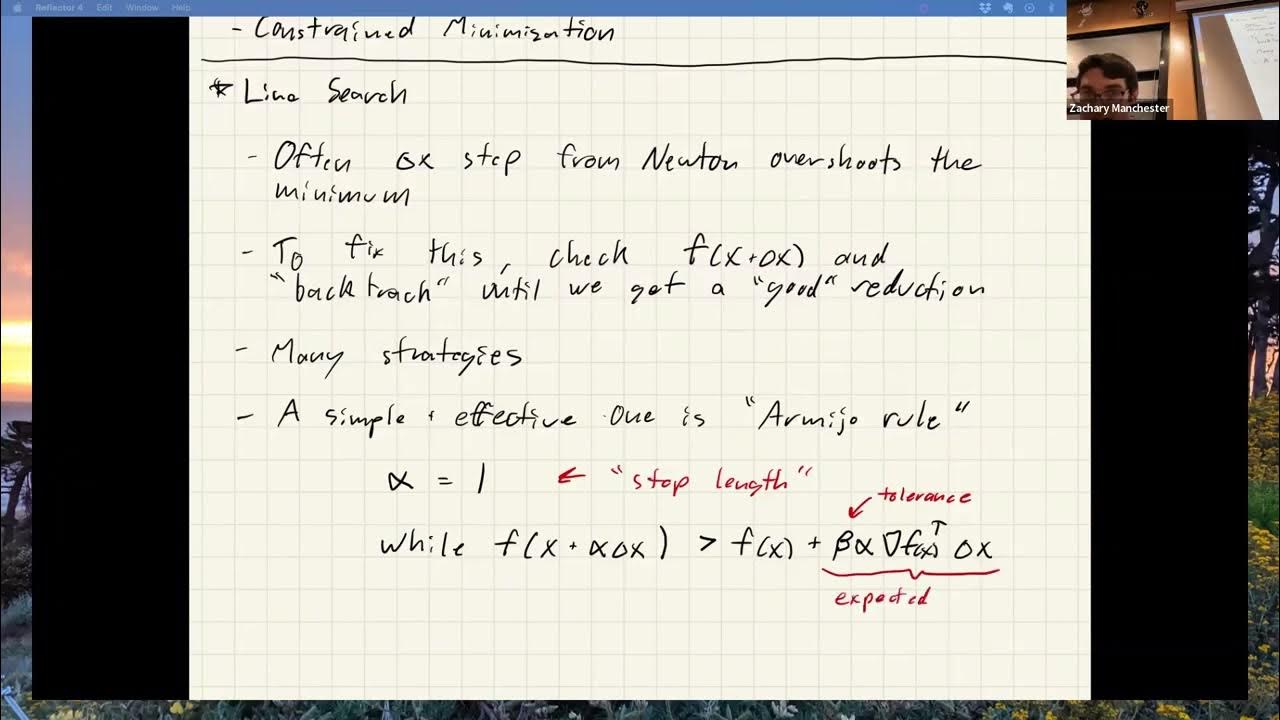 Reflector 4 Edit Window Help
- Constrained Minimization
* Line Search
- Often Δx step from Newton overshoots the
minimum
- To fix this, check f(x+Δx) and
"backtrack" until we get a "good" reduction
- Many strategies
- A simple + effective one is "Armijo rule"
α = 1 ← "step length"
tolerance
while f(x + αΔx) > f(x) + βα∇f(x)ᵀ Δx
expected
Zachary Manchester